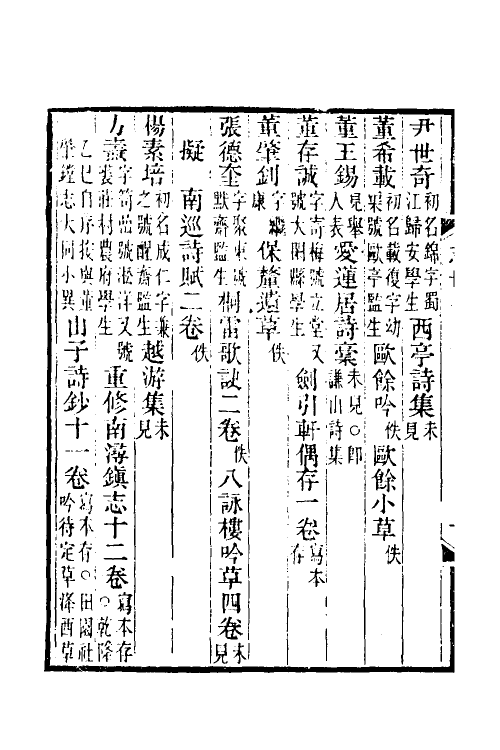 尹世奇初名錦字蜀江歸安學生西亭詩集未見
董希載初名載復字幼渠號歐亭監生歐餘吟佚歐餘小草佚
董王錫見舉人表愛蓮居詩稾未見○卽謙山詩集
董存誠字寄梅號立堂又號大閑縣學生劍引軒偶存一卷寫本存
董肇釗字康保釐遺草佚
張德奎字聚東號默齋監生桐雷歌訣二卷佚八詠樓吟草四卷未見
擬南巡詩賦二卷佚
楊素培初名成仁字兼之號醒齋監生越游集未見
方熹字筒嵒號淞洋又號裴莊村農府學生重修南潯鎮志十二卷寫本存○乾隆乙巳自序按與董肇鏜志大同小異山子詩鈔十一卷寫本存○田園社吟待定草滌酉草